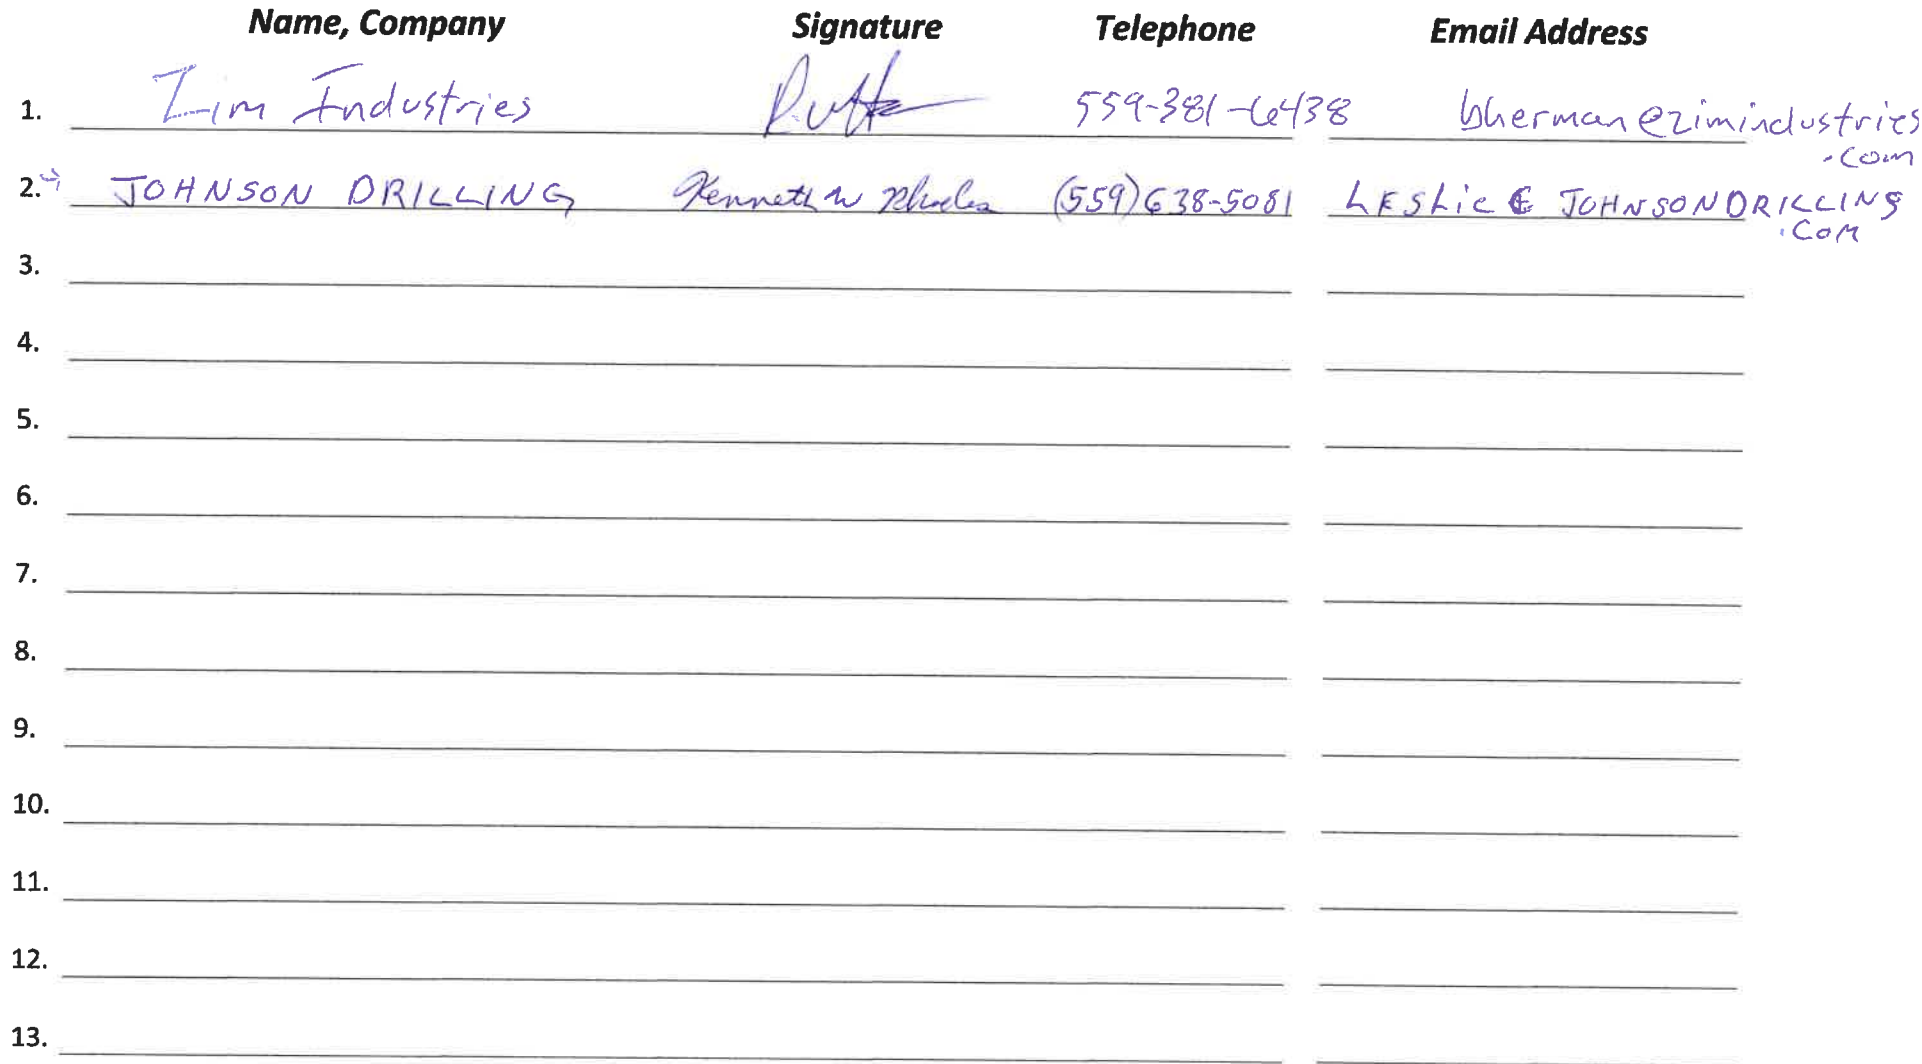 Name, Company Signature Telephone Email Address
1. Zim Industries 559-381-6438 bherman@zimindustries
.com
2. JOHNSON DRILLING Kenneth W Rhodes (559)638-5081 LESLie@JOHNSONDRILLING
.COM
3.
4.
5.
6.
7.
8.
9.
10.
11.
12.
13.